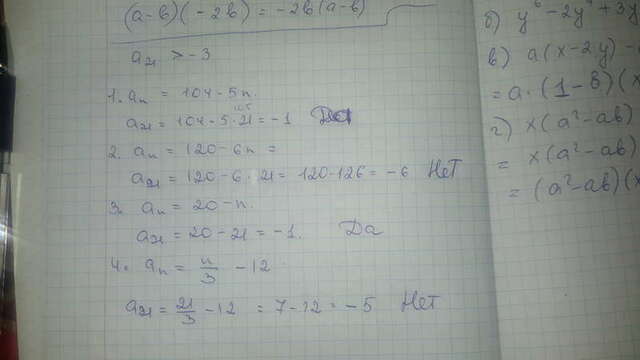 (a-b)(-2b) = -2b(a-b)
a₂₁ > -3
1. aₙ = 104-5n.
105
a₂₁ = 104-5·21 = -1 Да
2. aₙ = 120-6n =
a₂₁ = 120-6·21 = 120-126 = -6 Нет
3. aₙ = 20-n.
a₂₁ = 20-21 = -1. Да
4. aₙ = n/3 - 12
a₂₁ = 21/3 - 12 = 7-12 = -5 Нет
б) y⁶ - 2y⁴ + 3y
в) a(x-2y) -
= a·(1-b)(x
г) x(a²-ab)
= x(a²-ab)
= (a²-ab)(x